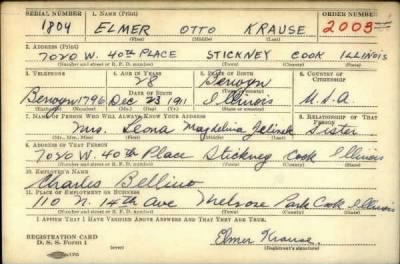 SERIAL NUMBER 1. NAME (Print) ORDER NUMBER
1804 ELMER OTTO KRAUSE 2003
(First) (Middle) (Last)
2. ADDRESS (Print)
7020 W. 40TH PLACE STICKNEY COOK ILLINOIS
(Number and street or R. F. D. number) (Town) (County) (State)
3. TELEPHONE 4. AGE IN YEARS 5. PLACE OF BIRTH 6. COUNTRY OF CITIZENSHIP
28 Berwyn
DATE OF BIRTH (Town or county)
Berwyn 1796 Dec 23 1911 Illinois U.S.A
(Exchange) (No.) (Mo.) (Day) (Yr.) (State or country)
7. NAME OF PERSON WHO WILL ALWAYS KNOW YOUR ADDRESS 8. RELATIONSHIP OF THAT PERSON
Mrs. Leona Magdelina Jelinek Sister
(Mr., Mrs., Miss) (First) (Middle) (Last)
9. ADDRESS OF THAT PERSON
7020 W. 40th Place Stickney Cook Illinois
(Number and street or R. F. D. number) (Town) (County) (State)
10. EMPLOYER'S NAME
Charles Bellino
11. PLACE OF EMPLOYMENT OR BUSINESS
110 N. 14th Ave Melrose Park Cook Illinois
(Number and street or R. F. D. number) (Town) (County) (State)
I AFFIRM THAT I HAVE VERIFIED ABOVE ANSWERS AND THAT THEY ARE TRUE.
REGISTRATION CARD
D. S. S. Form 1
Elmer Krause
(Registrant's signature)